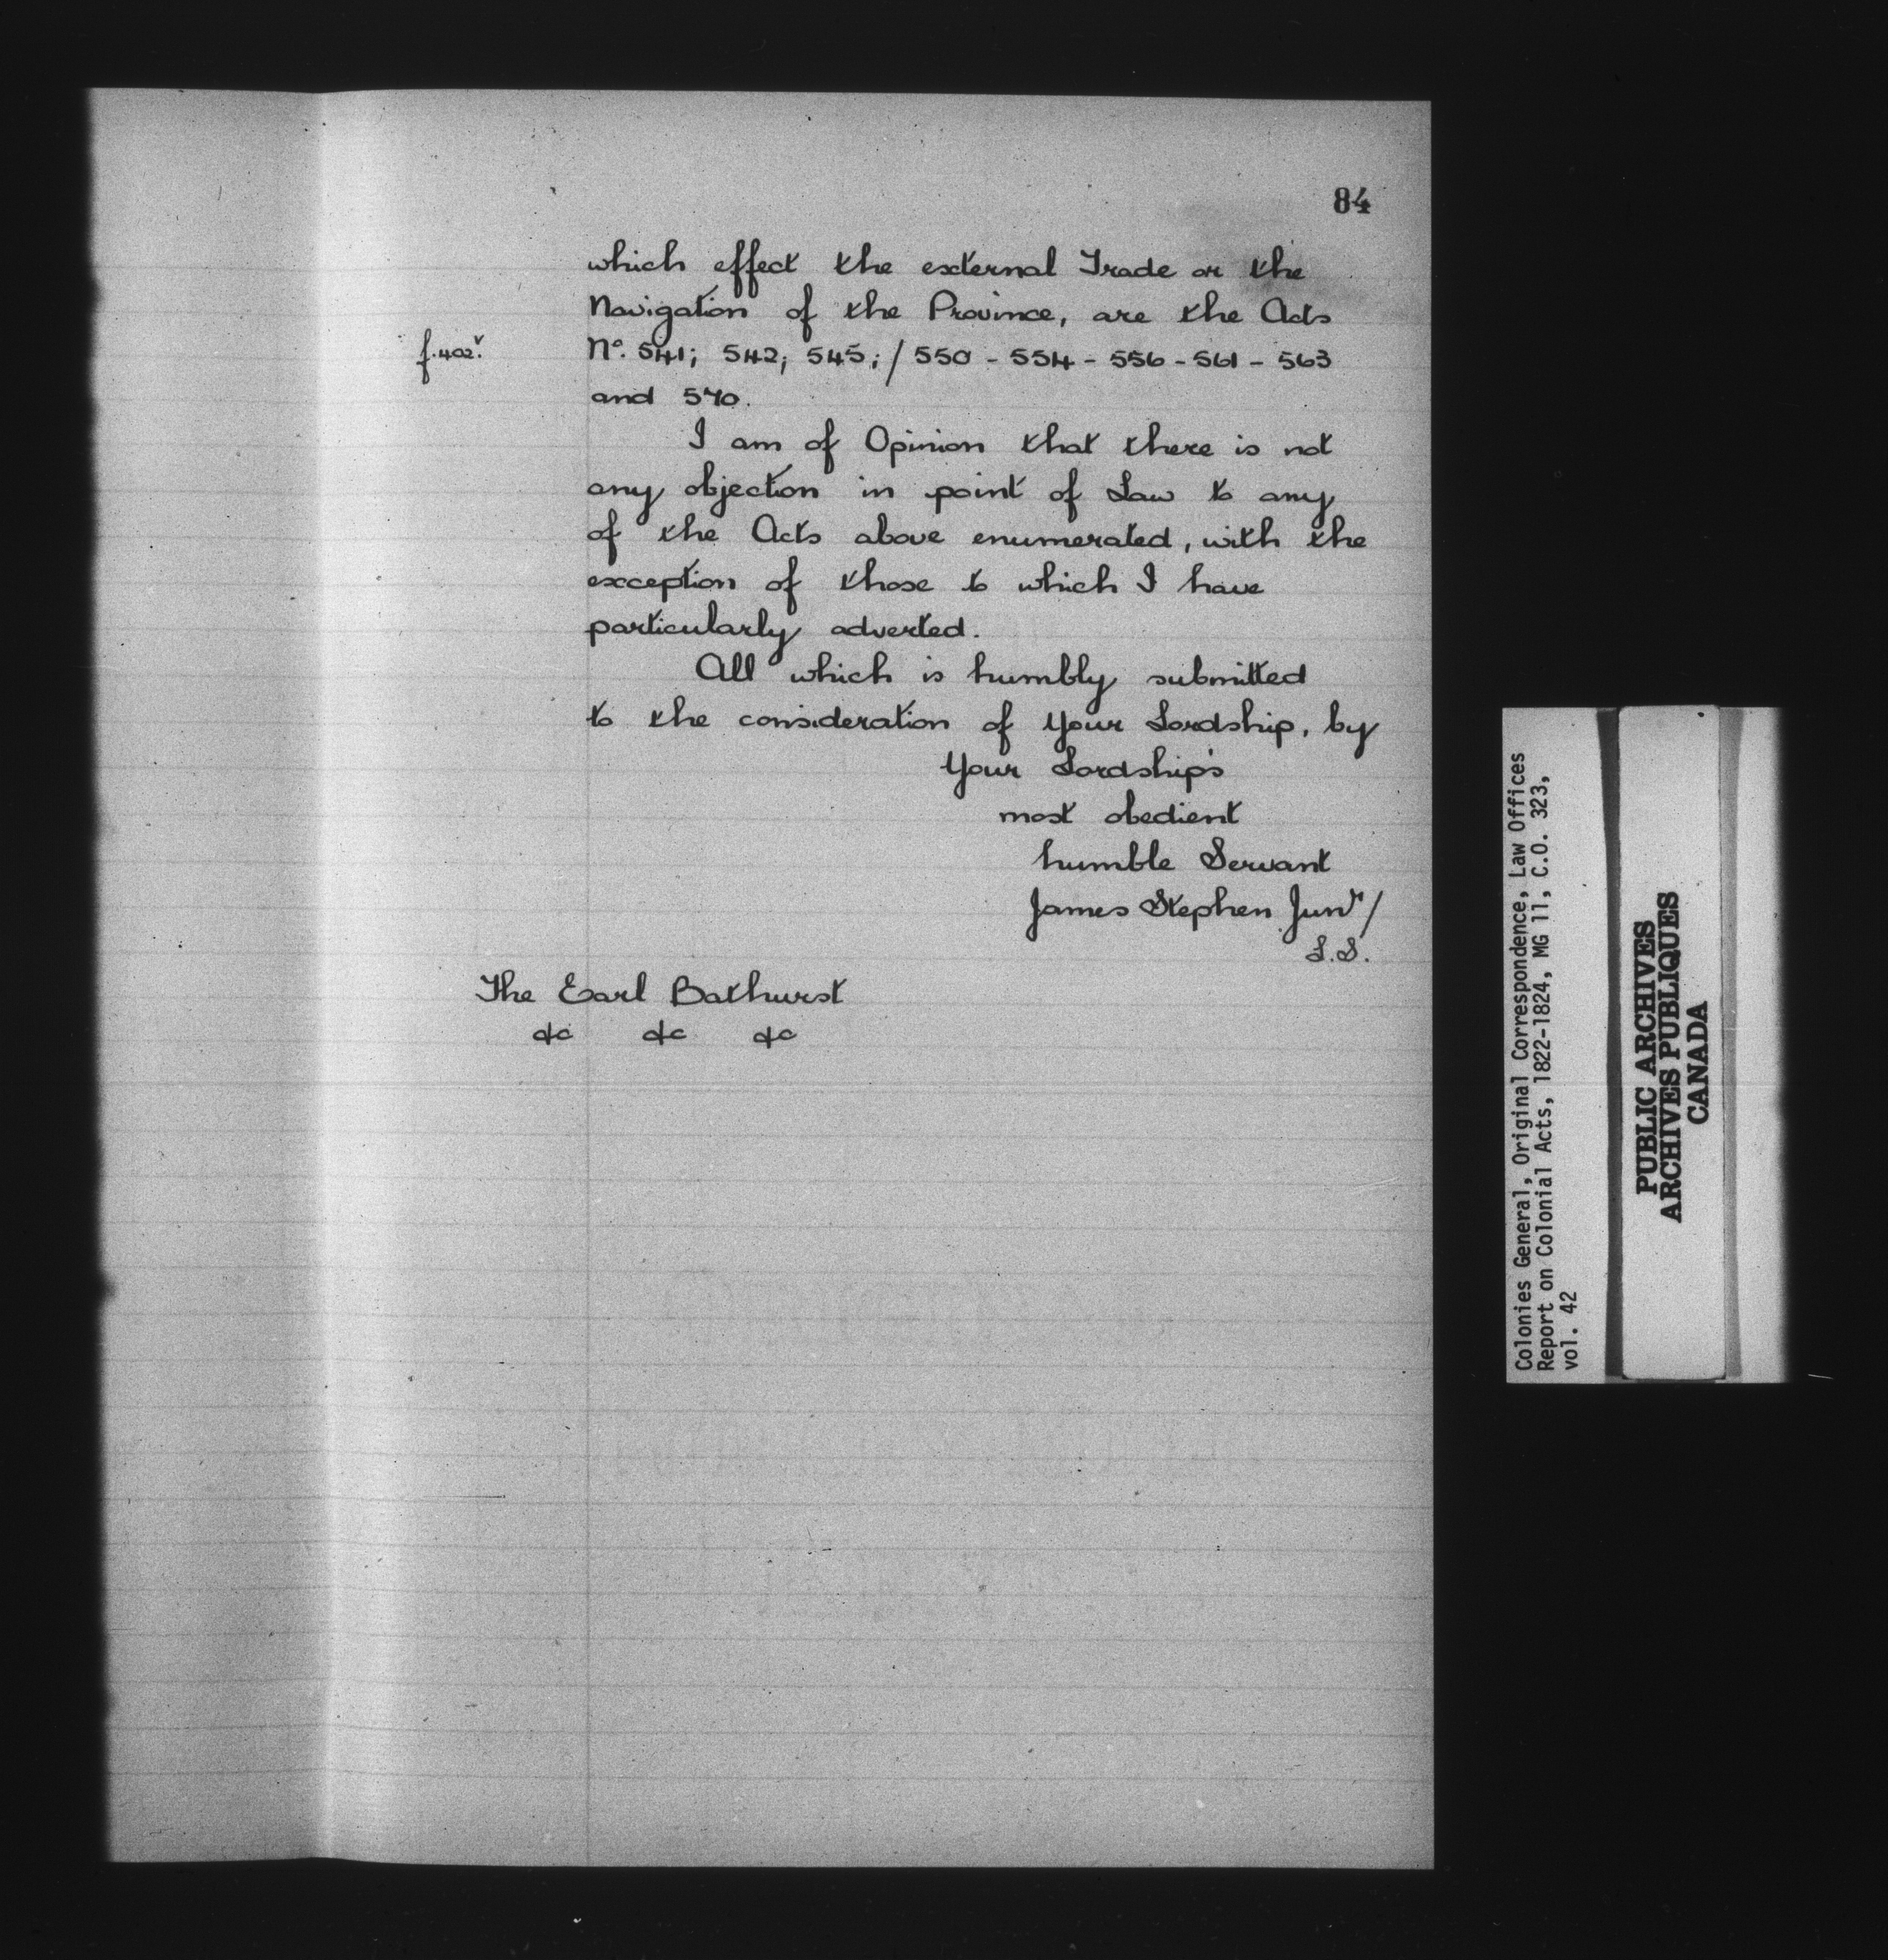 84
which effect the external Trade or the
Navigation of the Province, are the Acts
f.402.v
No. 541; 542; 545; / 550 - 554 - 556 - 561 - 563
and 570.
I am of Opinion that there is not
any objection in point of Law to any
of the Acts above enumerated, with the
exception of those to which I have
particularly adverted.
All which is humbly submitted
to the consideration of your Lordship, by
Your Lordship's
most obedient
humble Servant
James Stephen Junr/
L.S.
The Earl Bathurst
&c &c &c
Colonies General, Original Correspondence, Law Offices
Report on Colonial Acts, 1822-1824, MG 11, C.O. 323,
vol. 42
PUBLIC ARCHIVES
ARCHIVES PUBLIQUES
CANADA